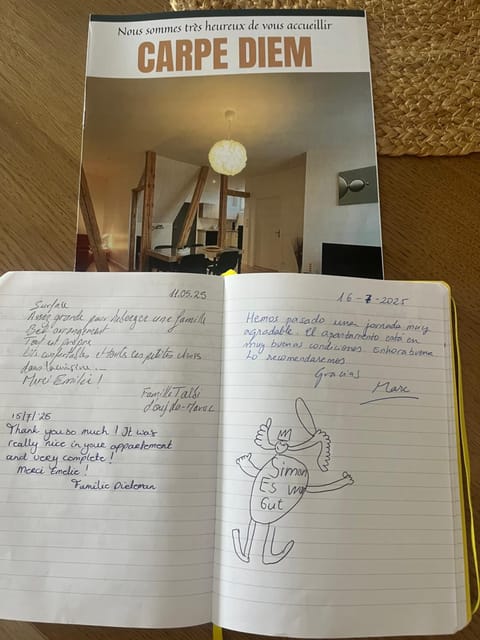 Nous sommes très heureux de vous accueillir
CARPE DIEM
11.05.25
Surface
Assez grande pour héberger une famille
Bel arrangement
Tout est propre
Lits confortables et toutes les petites choses
dans la cuisine...
Merci Emilie !
Famille Talbi
d'oujda-Maroc
15/7/25
Thank you so much ! It was
really nice in your appartement
and very complete !
Merci Emelie !
Familie
16-7-2025
Hemos pasado una jornada muy
agradable. El apartamento está en
muy buenas condiciones. Enhorabuena
Lo recomendaremos.
Gracias
Marc
Simon
Es
Gut